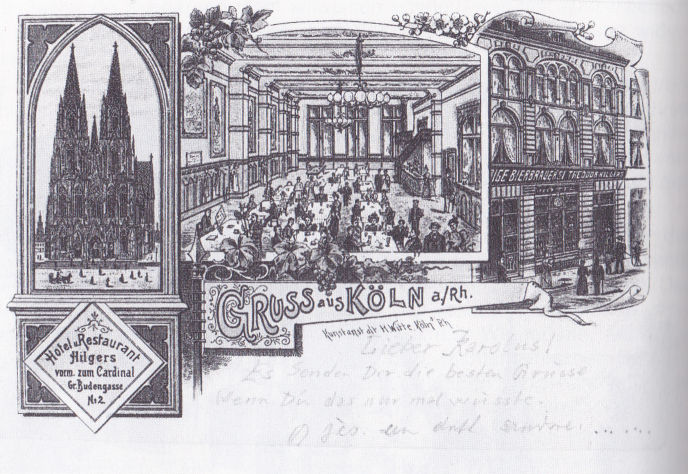 Gruss aus Köln a/Rh.
Kunstanst. de H. Wüte Köln a/Rh
IGE BIERBRAUEREI THEODOR HILGERS
Hotel u. Restaurant
Hilgers
vorm. zum Cardinal
Gr. Budengasse
No 2.
Lieber Karolus!
Es senden Dir die besten Grüsse
Wenn Du das nur mal wüsste.
O